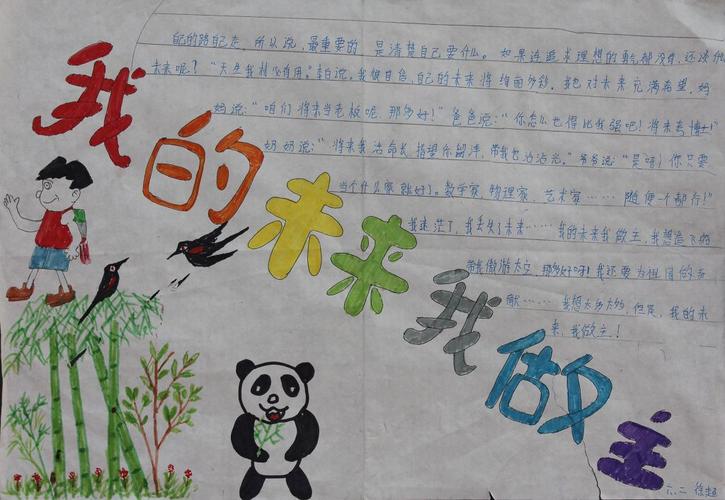 自己的路自己走，所以说，最重要的是清楚自己要什么。如果连追求理想的勇气都没有，还谈什么
未来呢？“天生我材必有用。”李白说。我很自色，自己的未来将绚丽多彩。我也对未来充满希望，妈
妈说：“咱们将来当老板呢，那多好！”爸爸说：“你怎么也得比我强吧！将来考博士！”
奶奶说：“将来我活命长，指望你留洋，带我也沾沾光。”爷爷说：“是呀！你只要
当个什么家就好了。数学家、物理家、艺术家……随便一个都行！”
我迷茫了，我丢失了未来……我的未来我做主，我想造飞船
带我傲游太空，那多好呀！我还要为祖国做贡
献……我想太多太多，但是，我的未
来，我做主！
我的未来我做主
六、二 徐超